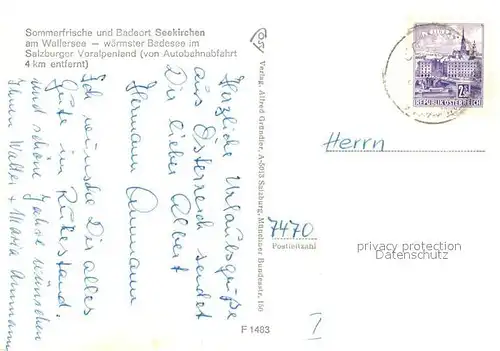 Sommerfrische und Badeort Seekirchen
am Wallersee — wärmster Badesee im
Salzburger Voralpenland (von Autobahnabfahrt
4 km entfernt)
Herzliche Urlaubsgrüße
aus Österreich sendet
Dir lieber Albert
Hermann Ammann
Ich wünsche Dir alles
Gute im Ruhestand.
und schöne Jahre wünschen
Ihnen Walter + Maria Ammann
Verlag Alfred Gründler, A-5013 Salzburg, Münchner Bundesstr. 150
F 1483
REPUBLIK ÖSTERREICH
Herrn
7470
Postleitzahl
privacy protection
Datenschutz